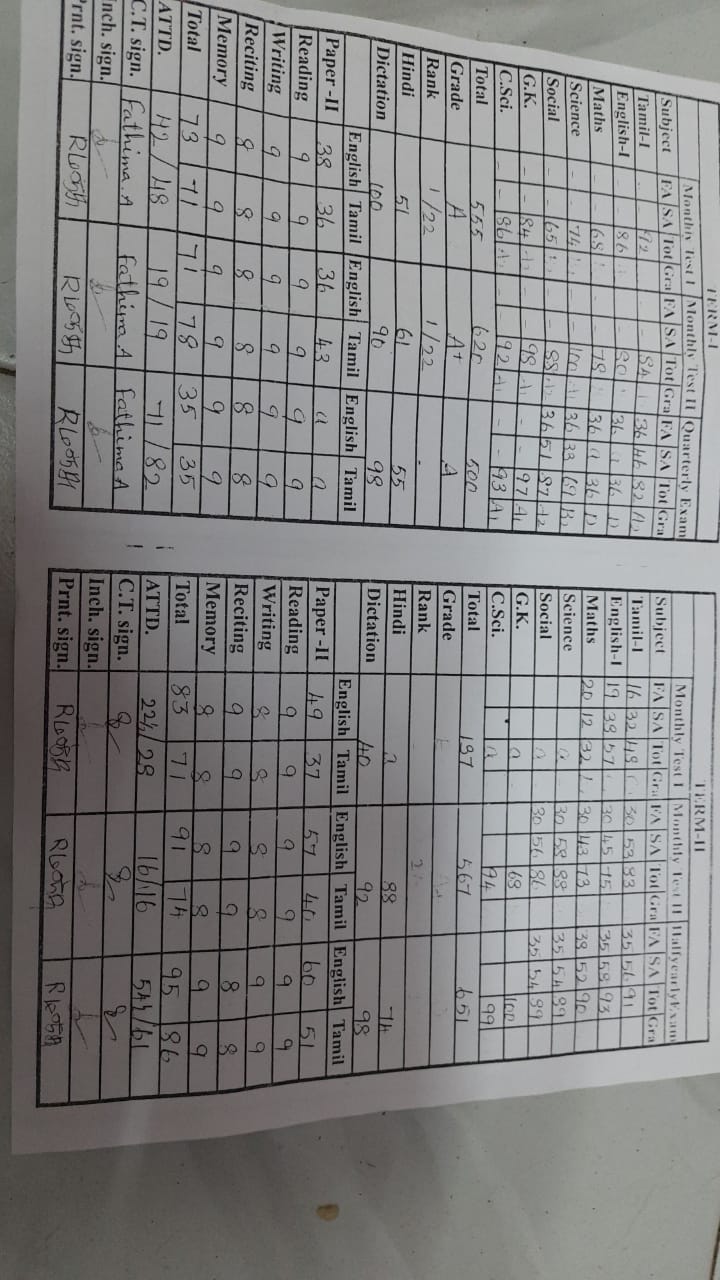 TERM-I
Monthly Test I Monthly Test II Quarterly Exam
Subject FA SA Tot Gra FA SA Tot Gra FA SA Tot Gra
Tamil-I - - 92 - - 84 36 46 82 A2
English-I - - 86 - - 80 36 a 36 D
Maths - - 68 - - 78 36 a 36 D
Science - - 74 - - 100 A1 36 33 69 B2
Social - - 65 - - 88 A2 36 51 87 A2
G.K. - - 84 - - 98 A1 - - 97 A1
C.Sci. - - 86 - - 92 A1 - - 93 A1
Total 555 620 500
Grade A A+ A
Rank 1/22 1/22 -
Hindi 51 61 55
Dictation 100 90 98
English Tamil English Tamil English Tamil
Paper -II 38 36 36 43 a a
Reading 9 9 9 9 9 9
Writing 9 9 9 9 9 9
Reciting 8 8 8 8 8 8
Memory 9 9 9 9 9 9
Total 73 71 71 78 35 35
ATTD. 42/48 19/19 71/82
C.T. sign. Fathima.A Fathima A Fathima A
Inch. sign.
Prnt. sign.
TERM-II
Monthly Test I Monthly Test II Halfyearly Exam
Subject FA SA Tot Gra FA SA Tot Gra FA SA Tot Gra
Tamil-I 16 32 48 30 53 83 35 56 91
English-I 19 38 57 30 45 75 35 58 93
Maths 20 12 32 30 43 73 38 52 90
Science a 30 58 88 35 54 89
Social a 30 56 86 35 54 89
G.K. a 68 100
C.Sci. a 94 99
Total 137 567 651
Grade
Rank 2
Hindi a 88 74
Dictation 40 92 98
English Tamil English Tamil English Tamil
Paper -II 49 37 57 40 60 51
Reading 9 9 9 9 9 9
Writing 8 8 8 8 9 9
Reciting 9 9 9 9 8 8
Memory 8 8 8 8 9 9
Total 83 71 91 74 95 86
ATTD. 22½/28 16/16 54½/61
C.T. sign.
Inch. sign.
Prnt. sign.